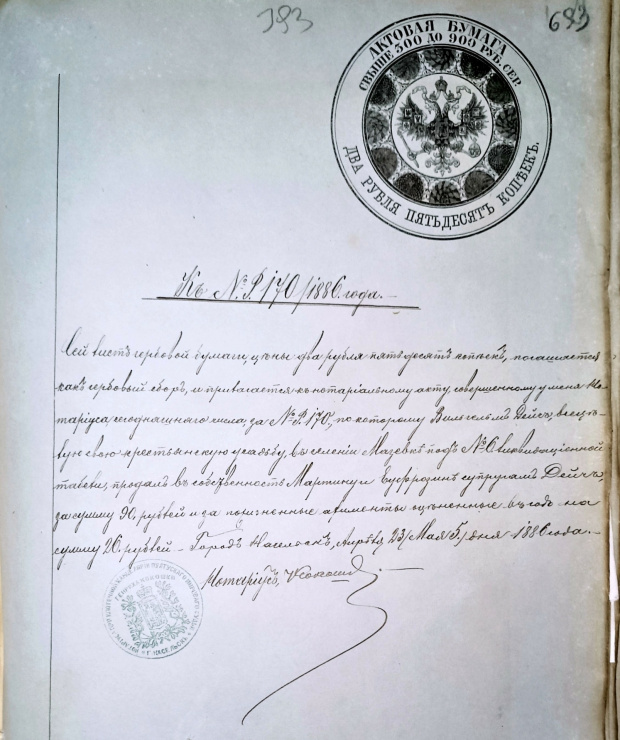 393
693
АКТОВАЯ БУМАГА
СВЫШЕ 300 ДО 900 РУБ. СЕР.
ДВА РУБЛЯ ПЯТЬДЕСЯТЪ КОПѢЕКЪ.
Къ № Р. 170/1886 года. —
Сей листъ гербовой бумаги, цѣны два рубля пятьдесятъ копѣекъ, погашается
какъ гербовый сборъ, и прилагается къ нотаріальному акту, совершенному у меня Но-
таріуса, сегоднашняго числа, за № Р. 170, по которому Вильгельмъ Дейсъ, всецѣ-
лую свою крестьянскую усадьбу, въ селеніи Мазевкѣ подъ № 6 ликвидаціонной
табели, продалъ въ собственность Мартину и Еуфрозинѣ супругамъ Дейчъ,
за сумму 90. рублей и за пожизненные алименты оцѣненные въ годъ на
сумму 20. рублей — Городъ Насельскъ, Апрѣля 23/Мая 5/ дня 1886 года. —
Нотаріусъ,